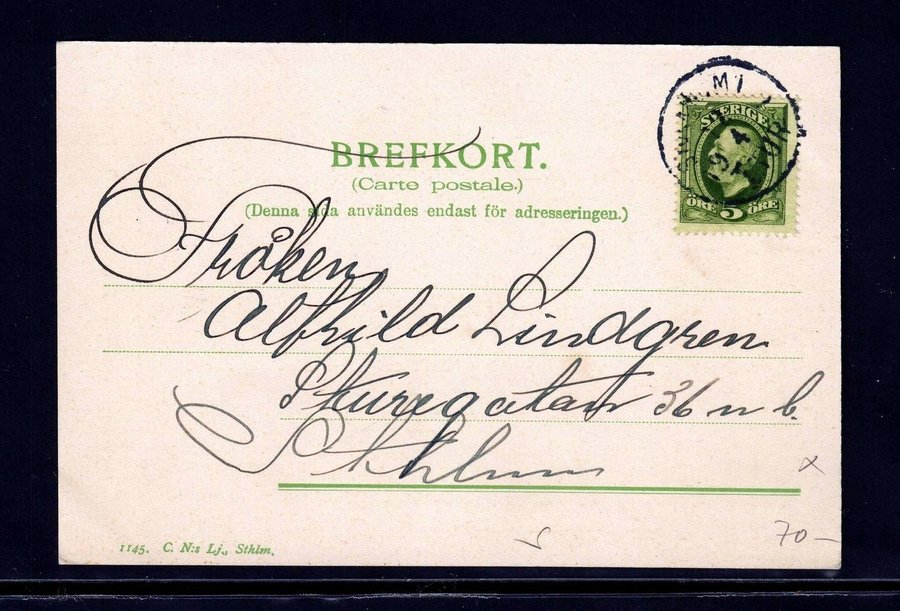 BREFKORT.
(Carte postale.)
(Denna sida användes endast för adresseringen.)
SVERIGE
ÖRE 5 ÖRE
19 4
Fröken
Alfhild Lindgren
Sturegatan 36 n b.
Sthlm
70-
1145. C. N:s Lj., Sthlm.